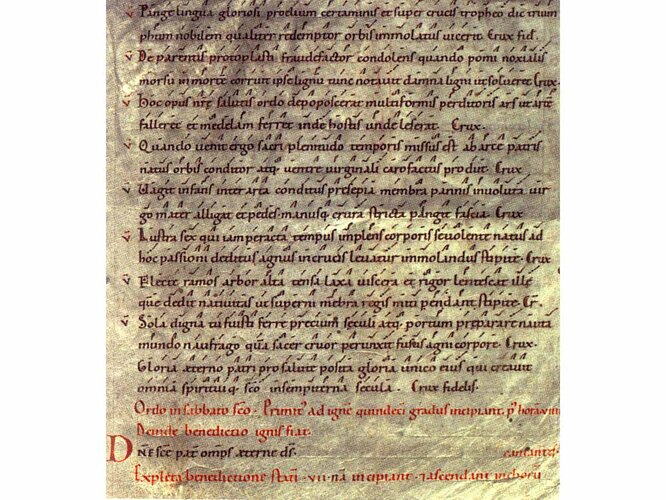 v Pange lingua gloriosi proelium certaminis et super crucis tropheo dic trium
phum nobilem qualiter redemptor orbis immolatus uicerit. Crux fid.
v De parentis protoplasti fraude factor condolens quando pomi noxialis
morsu in morte corruit ipse lignu tunc notauit damna ligni ut solueret Crux.
v Hoc opus nrę salutis ordo depoposcerat multiformis perditoris ars ut arte
falleret et medelam ferret inde hostis unde leserat. Crux.
v Quando uenit ergo sacri plenitudo temporis missus est ab arce patris
natus orbis conditor atq; uentre uirginali caro factus produit. Crux
v Uagit infans inter arta conditus presepia membra pannis inuoluta uir
go mater alligat et pedes manusq; crura stricta pangit fascia. Crux
v Lustra sex qui iam peracta tempus implens corporis se uolente natus ad
hoc passioni deditus agnus in crucis leuatur immolandus stipite. Crux
v Flecte ramos arbor alta tensa laxa uiscera et rigor lentescat ille
quē dedit natiuitas ut superni mēbra regis miti pendant stipite. Cr.
v Sola digna tu fuisti ferre precium sęculi atq; portum preparare nauta
mundo naufrago quā sacer cruor perunxit fusus agni corpore. Crux.
Gloria ęterno patri pro salute posita gloria unico eius qui creauit
omnia spirituiq; sco in sempiterna secula. Crux fidelis.
Ordo in sabbato sco. Primit' ad ignē quindeci gradus incipiant. p' horā
Deinde benedictio ignis fiat.
DNE sce pat omps ęterne ds. cantantes.
Expleta benedictione statī .vii. nā incipiant. ascendant in choru